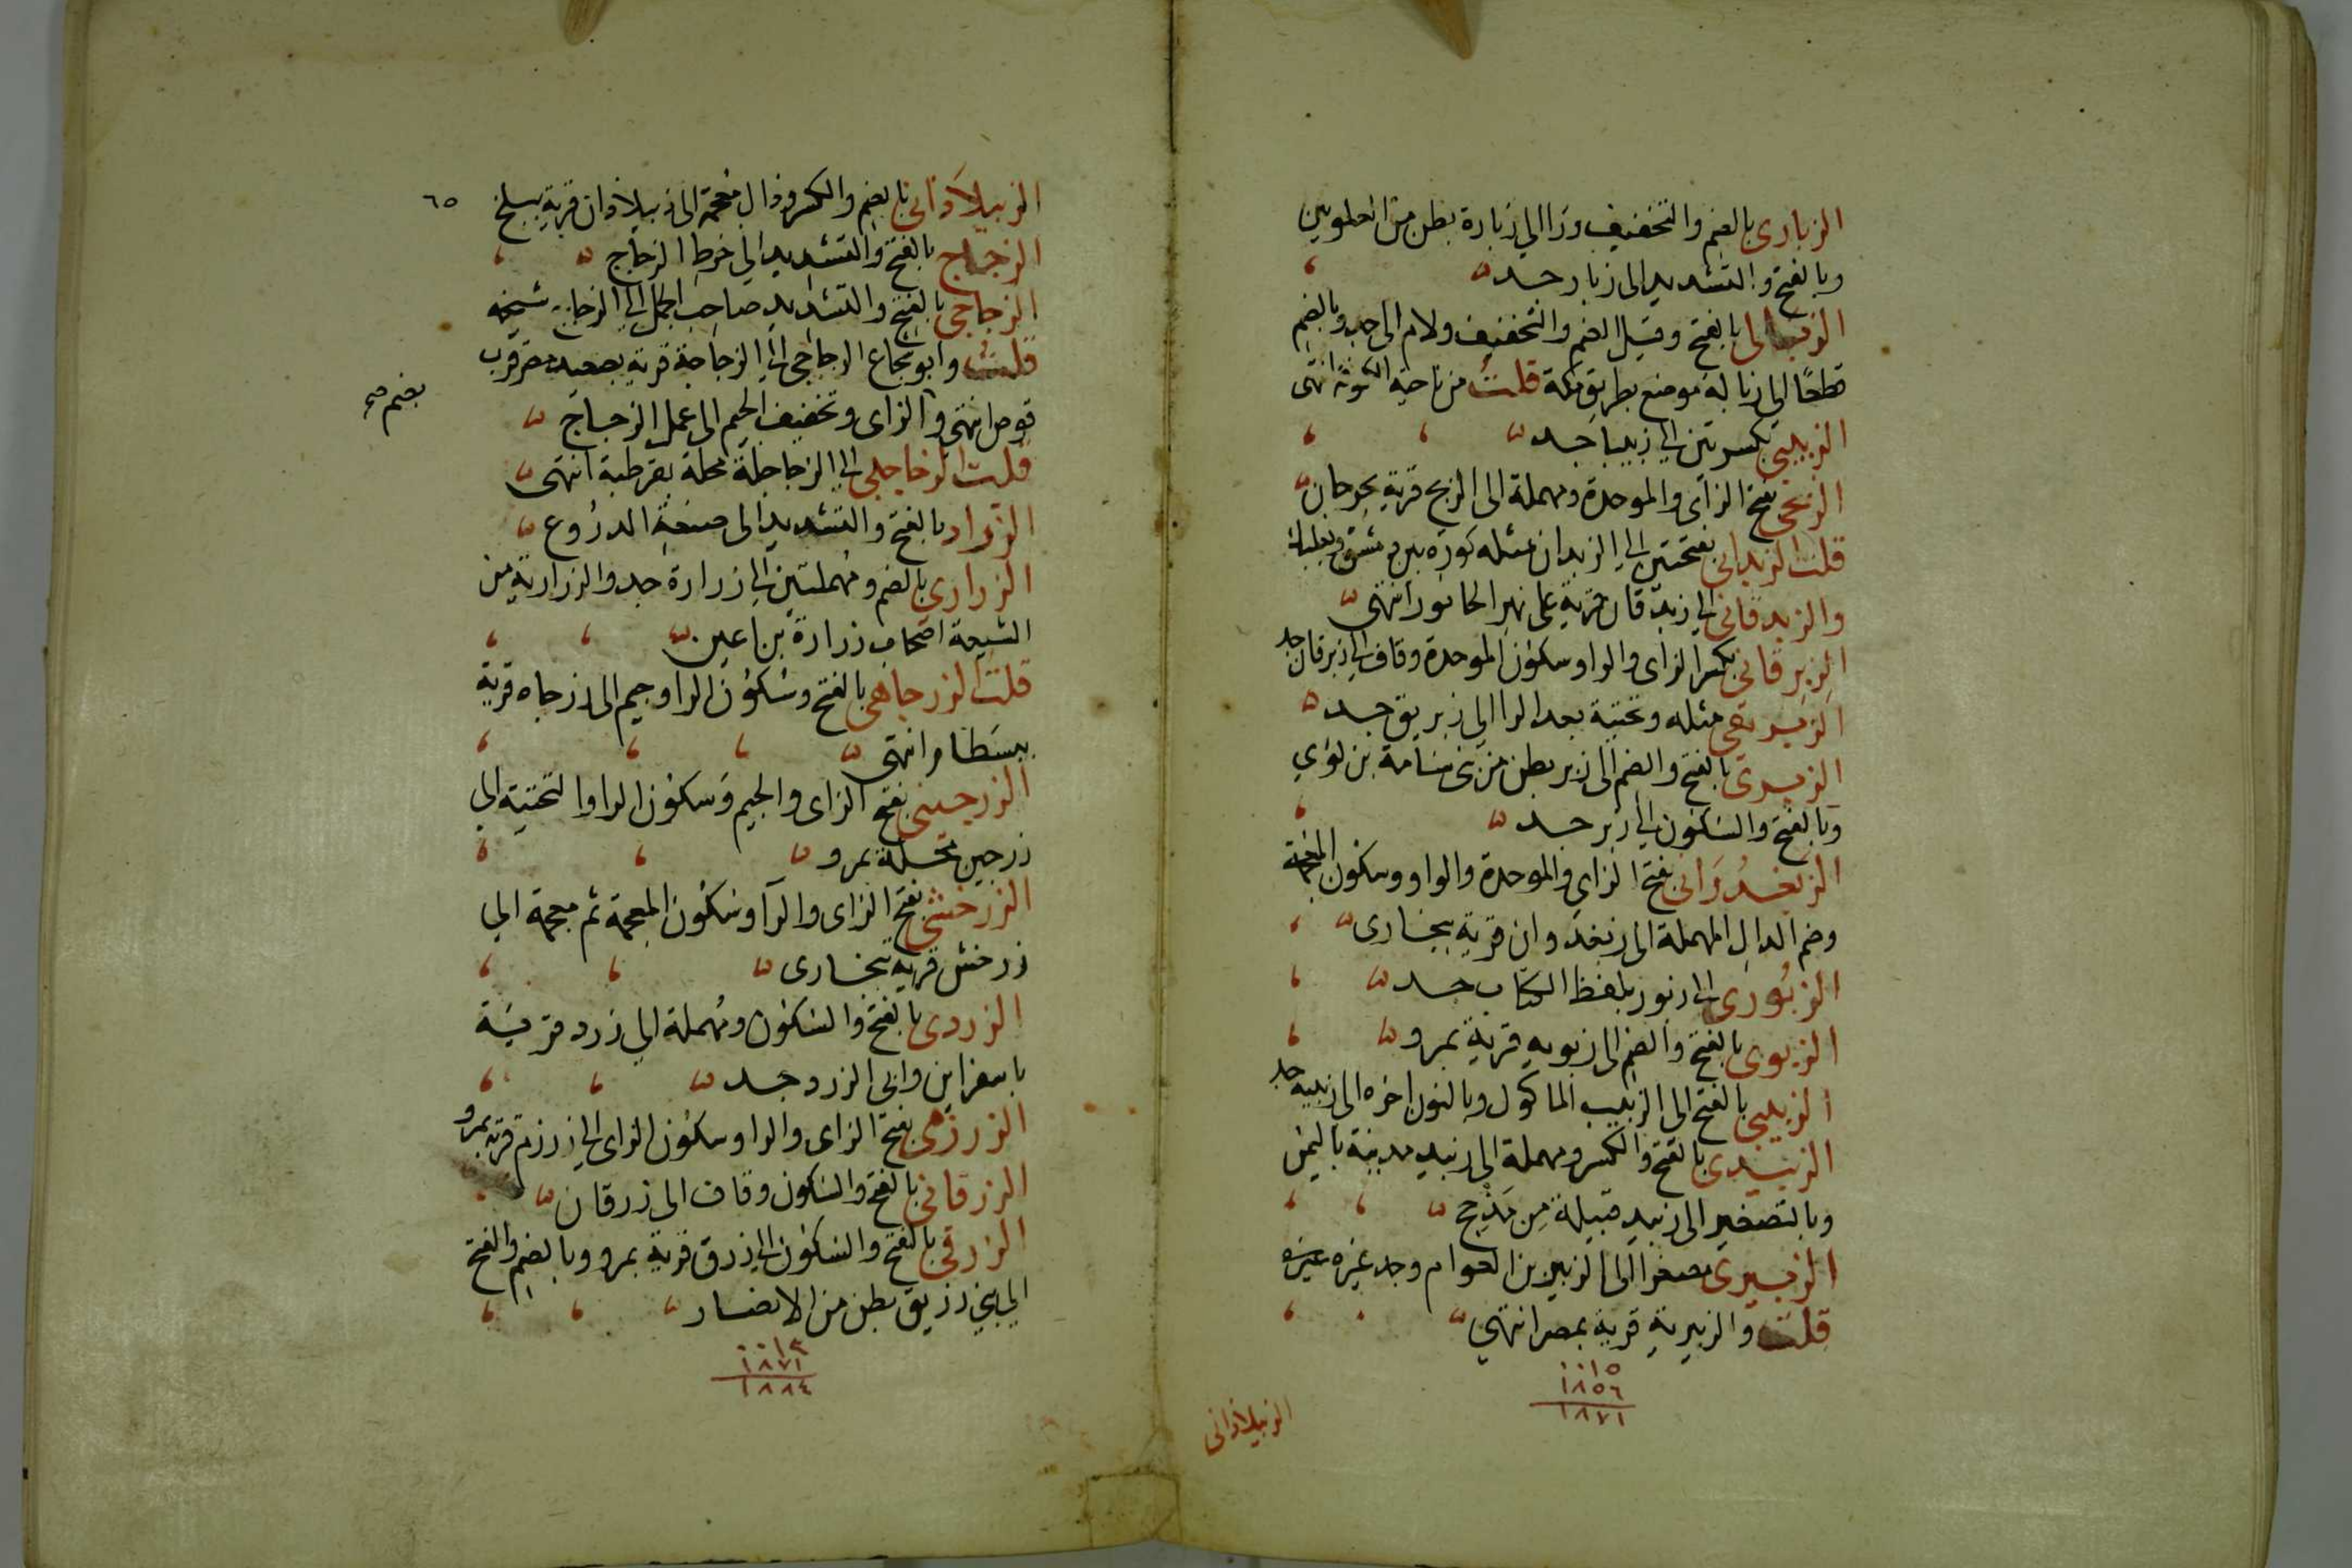 الزبارى بالضم والتخفيف ورا الي زبارة بطن من العلويين
وبالفتح والتشديد الى زبار جد
الزبالى بالفتح وقيل الضم والتخفيف ولام الى جد وبالضم
قطعا الي زبالة موضع بطريق مكة قلت من ناحية الكوفة انتهى
الزبيبي بكسرتين الي زبيبا جد
الزبحى بفتح الزاى والموحدة ومهملة الى الزبح قرية بجرجان
قلت الزبدانى بفتحتين الي الزبدان مثله كورة بين دمشق وبعلبك
والزبدقانى الي زبدقان قرية على نهر الخابور انتهى
الزبرقانى بكسر الزاى والرا وسكون الموحدة وقاف الي زبرقان جد
الزبريقى مثله وتحتية بعد الرا الي زبريق جد
الزبرى بالفتح والضم الى زبر بطن من بنى سامة بن لؤي
وبالفتح والسكون الي زبر جد
الزبغدوانى بفتح الزاى والموحدة والواو وسكون المعجمة
وضم الدال المهملة الى زبغدوان قرية ببخارى
الزبورى الى زبور بلفظ الكتاب جد
الزبوى بالفتح والضم الى زبويه قرية بمرو
الزبيبى بالفتح الى الزبيب الماكول وبالنون اخره الى زبيبة جد
الزبيدى بالفتح والكسر ومهملة الى زبيد مدينة باليمن
وبالتصغير الى زبيد قبيلة من مذحج
الزبيرى مصغرا الى الزبير بن العوام وجد غيره
قلت والزبيرية قرية بمصر انتهي
٠٠١٥
١٨٥٦
١٨٧١
الزبيلاذانى
٦٥
الزبيلاذانى بالضم والكسر وذال معجمة الى زبيلاذان قرية ببلخ
الزجاج بالفتح والتشديد الي خرط الزجاج
الزجاجى بالفتح والتشديد صاحب الجمل الي الزجاج شيخه
قلت وابو شجاع الزجاجى الي الزجاجة قرية بصعيد مصر قرب
قوص انتهى والزاى وتخفيف الجيم الى عمل الزجاج
بضم صح
قلت الزجاجلى الي الزجاجلة محلة بقرطبة انتهى
الزراد بالفتح والتشديد الى صنعة الدروع
الزرارى بالضم ومهملتين الي زرارة جد والزرارية من
الشيعة اصحاب زرارة بن اعين
قلت الزرجاهى بالفتح وسكون الرا وجيم الى زرجاه قرية
ببسطام انتهى
الزرجينى بفتح الزاى والجيم وسكون الرا والتحتية الي
زرجين محلة بمرو
الزرخشى بفتح الزاى والرا وسكون المعجمة ثم معجمة الي
زرخش قرية ببخارى
الزردى بالفتح والسكون ومهملة الي زرد قرية
باسفراين والى الزرد جد
الزرزمى بفتح الزاى والرا وسكون الزاى الي زرزم قرية بمرو
الزرقانى بالفتح والسكون وقاف الى زرقان
الزرقى بالفتح والسكون الي زرق قرية بمرو وبالضم والفتح
الي بني زريق بطن من الانصار
٠٠١٣
١٨٧١
١٨٨٤